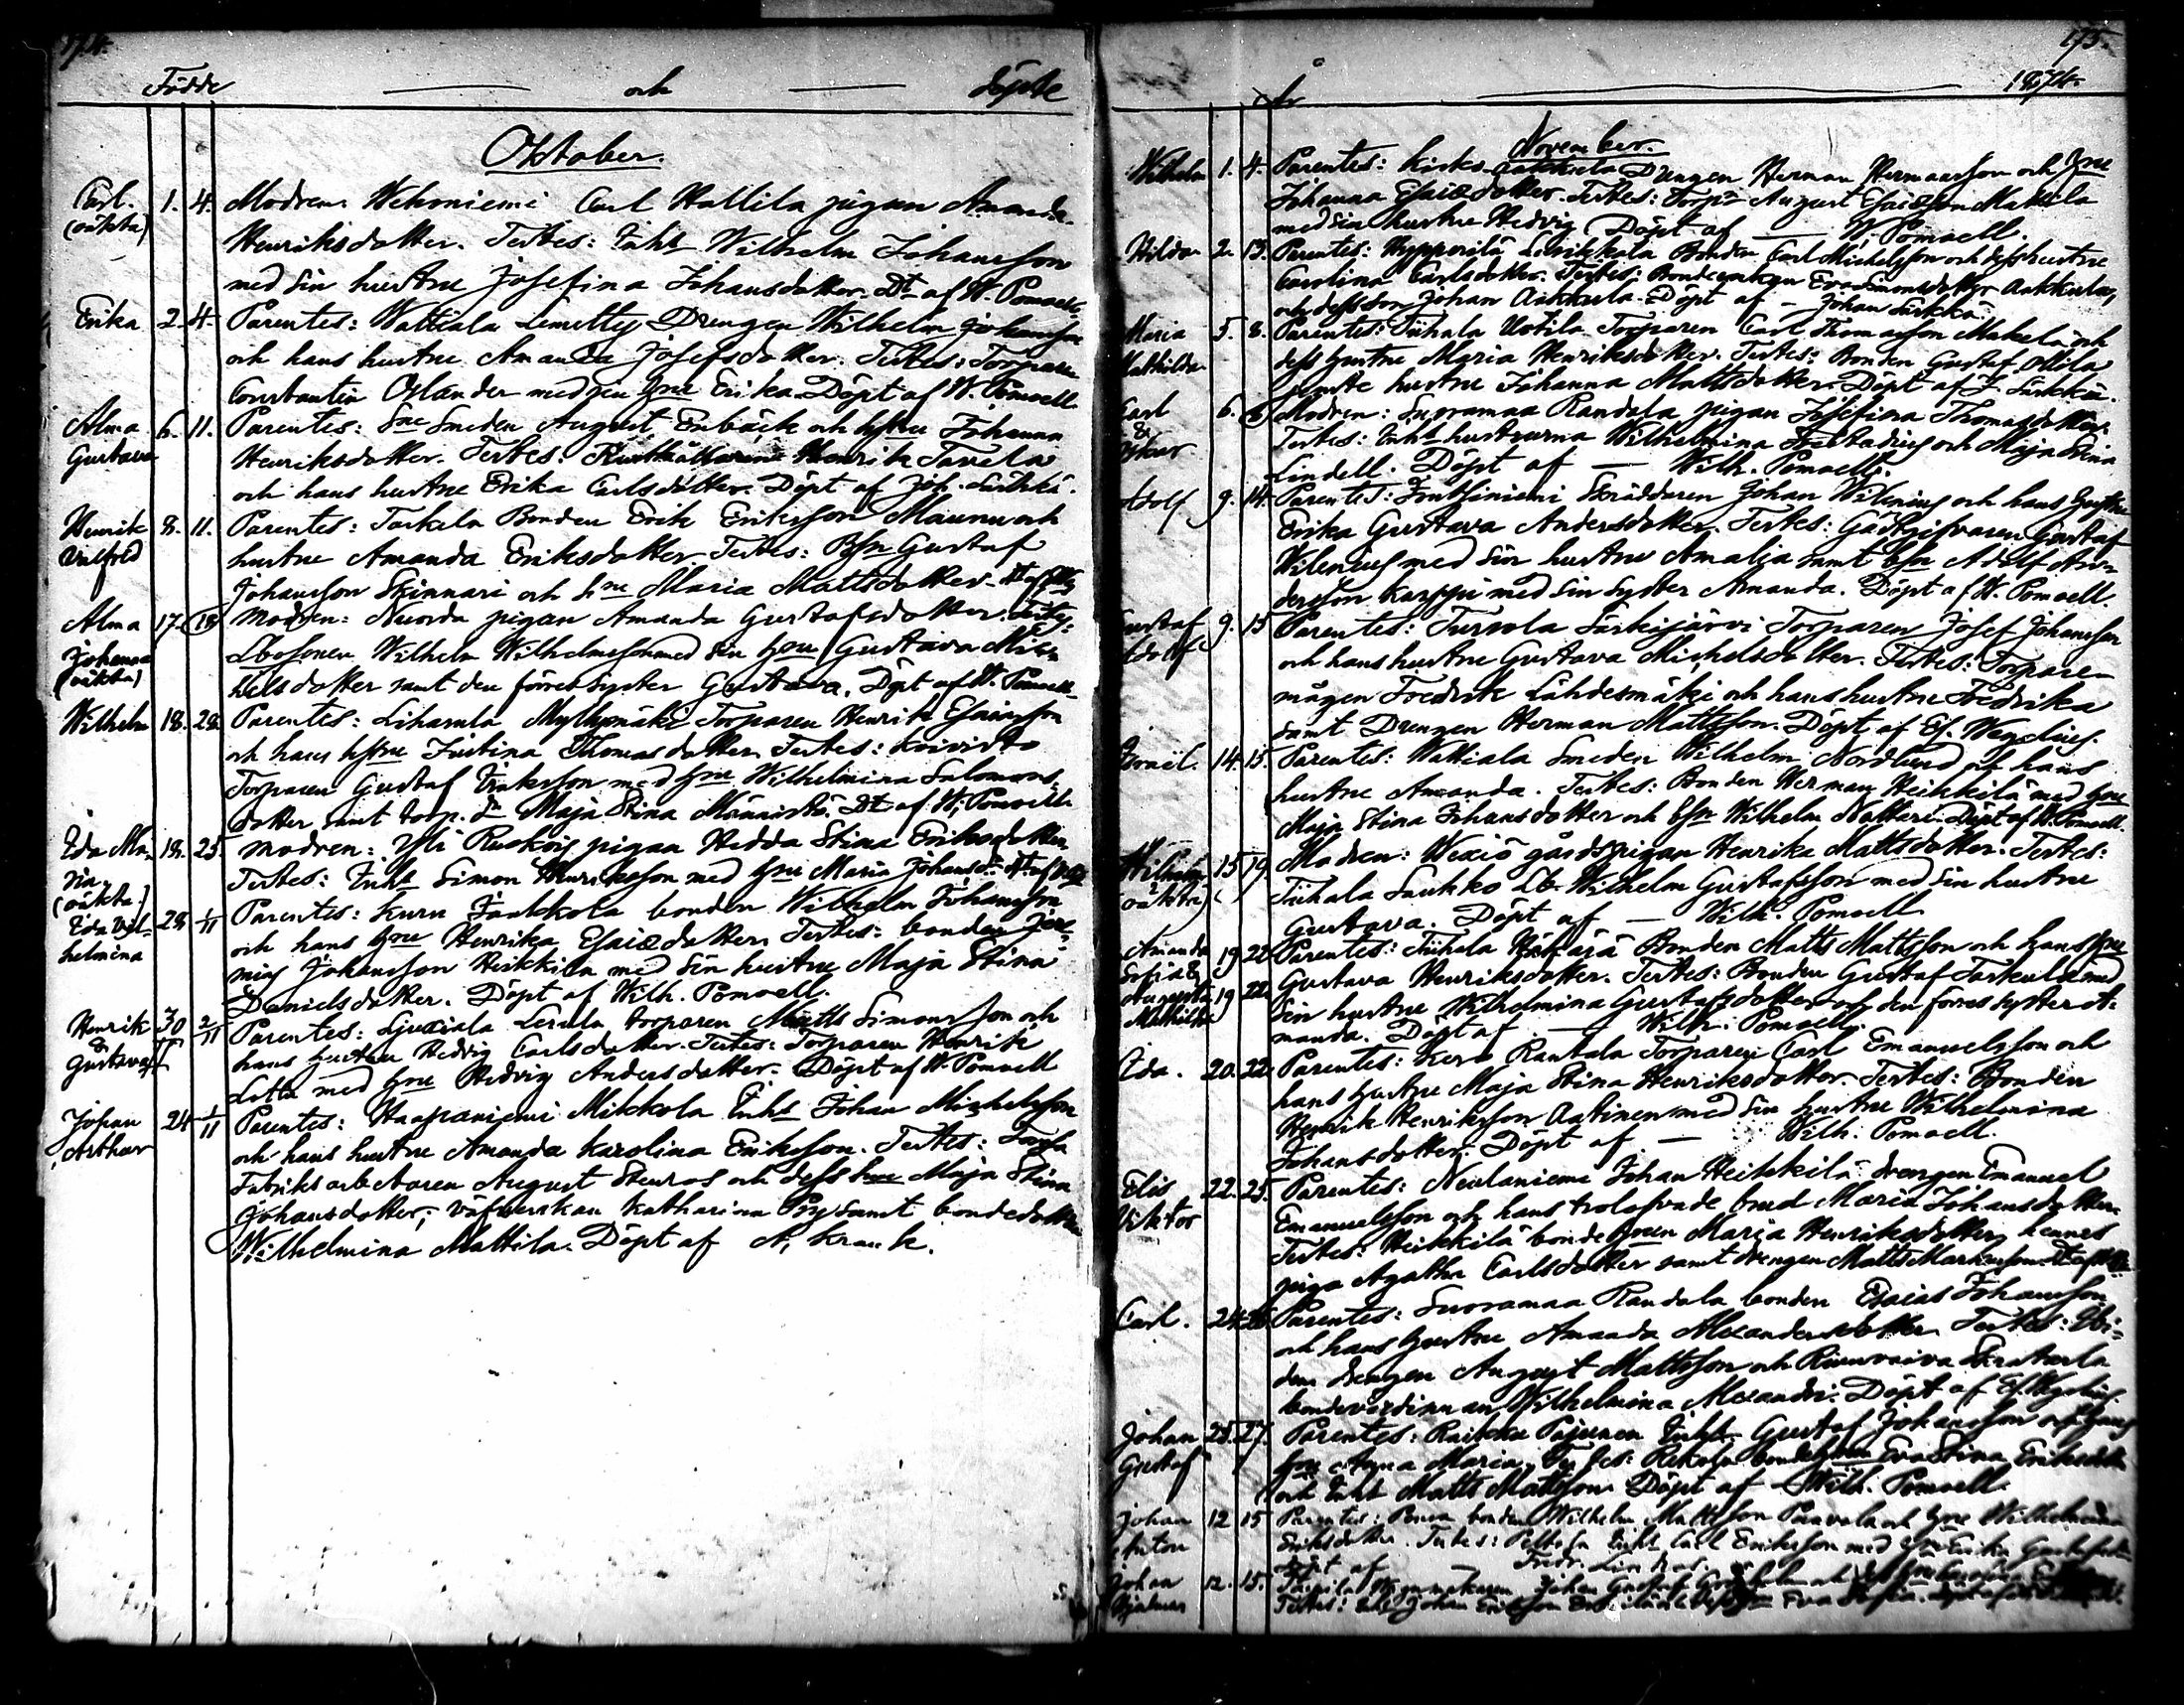 174.
Födde — och — döpte
Oktober.
Carl. (oäkta) 1. 4. Modren: Wehoniemi Carl Hallila pigan Amanda
Henriksdotter. Testes: Inh. Wilhelm Johansson
med sin hustru Josefina Johansdotter. Dt af W. Pomoell
Erika 2. 4. Parentes: Wattiala Lemetty Drengen Wilhelm Johansson
och hans hustru Amanda Josefsdotter. Testes: Torparen
Constantin Oslander med sin hru Erika. Döpt af W. Pomoell.
Alma Gustava 6. 11. Parentes: Smeden August Enbäck och hustru Johanna
Henriksdotter. Testes: Henrik Tavela
och hans hustru Erika Carlsdotter. Döpt af Joh. Särkkä.
Henrik Vilfred 8. 11. Parentes: Tarkela Bonden Erik Eriksson Maunu och
hustru Amanda Eriksdotter. Testes: Gustaf
Johansson Skinnari och Maria Mattsdotter.
Alma Johanna (oäkta) 17. 18 Modren: Nuorda pigan Amanda Gustafsdotter. Testes:
Wilhelm Wilhelmsson med sin hru Gustava Mi-
helsdotter samt den förres syster Gustava. Döpt af W. Pomoell
Wilhelm 18. 28. Parentes: Liharula Myllymäki Torparen Henrik Esaiasson
och hans Justina Thomasdotter. Testes: Koivisto
Torparen Gustaf Eriksson med hru Wilhelmina Salomons-
dotter samt torp. Maja Stina Männistö. Dt af W. Pomoell
Ida Maria (oäkta.) 18. 25. Modren: Yli Ruokois pigan Hedda Stina Eriksdotter
Testes: Inh. Simon Henriksson med hru Maria Johansd:
Ida Vilhelmina 28 1/11 Parentes: Kuru Jaakkola bonden Wilhelm Johansson
och hans hru Henrika Esaiædotter. Testes: bonden Jere-
mias Johansson Heikkila med sin hustru Maja Stina
Danielsdotter. Döpt af Wilh. Pomoell.
Henrik & Gustava 30 2/11 Parentes: Liuxiala Lerula torparen Matts Simonsson och
hans hustru Hedvig Carlsdotter. Testes: Torparen Henrik
med hru Hedvig Andersdotter. Döpt af W. Pomoell
Johan Arthur 24 1/11 Parentes: Haapaniemi Mikkola Inh. Johan Michelsson
och hans hustru Amanda Karolina Eriksson. Testes:
Fabriks arbetaren August Stenros och dess hru Maja Stina
Johansdotter; väfverskan Katharina samt bondedotter
Wilhelmina Mattila. Döpt af A. Krank.
175.
År — 1874.
November.
Wilhelm 1. 4. Parentes: Drengen Herman Hermansson och hru
Johanna Esaiædotter. Testes: Torp. August Esaiæson Mattila
med sin hustru Hedvig Döpt af — W. Pomoell.
Hilda 2. 13. Parentes: Bonden Carl Michelsson och dess hustru
Carolina Carlsdotter. Testes: Bondeenkan Eva Simonsdotter Aakkula
och dess son Johan Aakkula. Döpt af — Johan Särkkä.
Maria Mathilda 5. 8. Parentes: Tiihala Uotila Torparen Carl Thomasson Makelä och
dess hustru Maria Henriksdotter. Testes: Bonden Gustaf Ollila
hustru Johanna Mattsdotter. Döpt af J. Särkkä.
Carl Oskar 6. 8 Modren: Suoramaa Randala pigan Josefina Thomasdotter
Testes: Inh. hustrurna Wilhelmina och Maja Stina
Lindell. Döpt af — Wilh. Pomoell.
Adolf 9. 14. Parentes: Skräddaren Johan Wilenius och hans hustru
Erika Gustava Andersdotter. Testes: Gästgifvaren Gustaf
Wilenius med sin hustru Amalia samt Adolf An-
dersson Karppi med sin syster Amanda. Döpt af W. Pomoell.
Gustaf Adolf 9. 15 Parentes: Tursola Särkijärvi Torparen Josef Johansson
och hans hustru Gustava Michelsdotter. Testes: Torpare-
mågen Fredrik Lähdesmäki och hans hustru Fredrika
samt Drengen Herman Mattsson. Döpt af Es. Wegelius.
Emil. 14. 15. Parentes: Wattiala Smeden Wilhelm Nordlund och hans
hustru Amanda. Testes: Bonden Herman Heikkilä med hru
Maja Stina Johansdotter och Wilhelm Nattari. Döpt af W. Pomoell.
Wilhelm (oäkta) 15 19. Modren: Wexiö gårds pigan Henrika Mattsdotter. Testes:
Tiihala Saukko Wilhelm Gustafsson med sin hustru
Gustava. Döpt af — Wilh. Pomoell
Amanda Sofia & Augusta Mathilda 19 22 Parentes: Tiihala Bonden Matts Mattsson och hans hru
19 22. Gustava Henriksdotter. Testes: Bonden Gustaf Tarkula med
sin hustru Wilhelmina Gustafsdotter och den förres syster A-
manda. Döpt af — Wilh. Pomoell.
Ida. 20. 22. Parentes: Rantala Torparen Carl Emanuelsson och
hans hustru Maja Stina Henriksdotter. Testes: Bonden
Henrik Henriksson Aatinen med sin hustru Wilhelmina
Johansdotter. Döpt af — Wilh. Pomoell.
Elis Viktor 22. 25. Parentes: Neulaniemi Johan Heikkilä drengen Emanuel
Emanuelsson och hans trolofvade brud Maria Johansdotter.
Testes: Heikkilä bonde hrun Maria Henriksdotter, hennes
piga Agatha Carlsdotter samt drengen Matts Markusson.
Carl. 24. 26. Parentes: Suoramaa Randala bonden Esaias Johansson
och hans hustru Amanda Alexandersdotter. Testes: Ibi-
dem drengen August Mattsson och
bondevärdinnan Wilhelmina Alexandri. Döpt af Es. Wegelius.
Johan Gustaf 25. 27. Parentes: Raikku Pajunen Inh. Gustaf Johansson och hans
hru Anna Maria. Testes: Rekola bonde hrun Eva Stina Eriksdotter
och Inh. Matts Mattsson. Döpt af Wilh. Pomoell
Johan Anton 12 15 Parentes: bonden Wilhelm Mattsson Paavola och hru Wilhelmina
Eriksdotter. Testes: Inh. Carl Eriksson med hru Erika
Döpt af —
Johan Hjalmar 12. 15. Johan Gustaf
Testes: Johan Eriksson Eva Sofia.